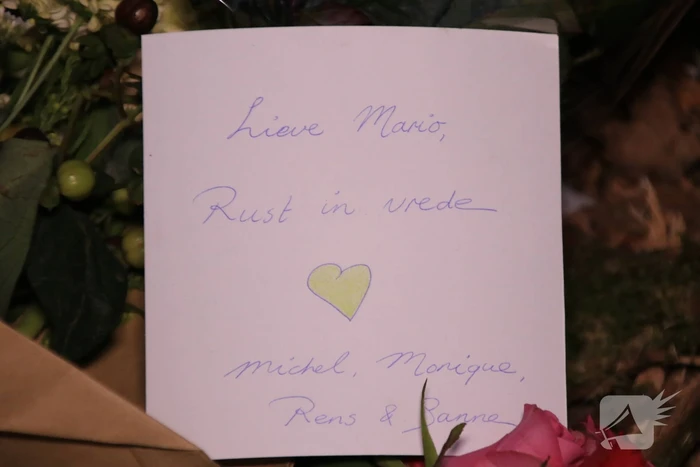 Lieve Mario,
Rust in vrede
Michel, Monique,
Rens & Sanne